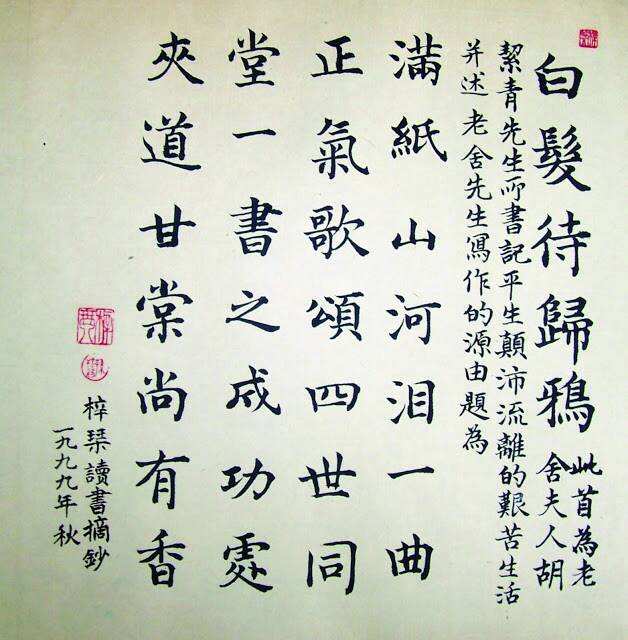 白髮待歸鴉
此首為老
舍夫人胡
絜青先生所書記平生顛沛流離的艱苦生活
并述老舍先生寫作的源由題為
滿紙山河泪一曲
正氣歌頌四世同
堂一書之成功處
夾道甘棠尚有香
梓琹讀書摘鈔
一九九九年秋